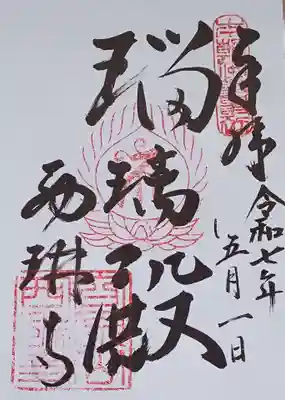 奉拝 令和七年
五月一日
瑠璃殿
西琳寺